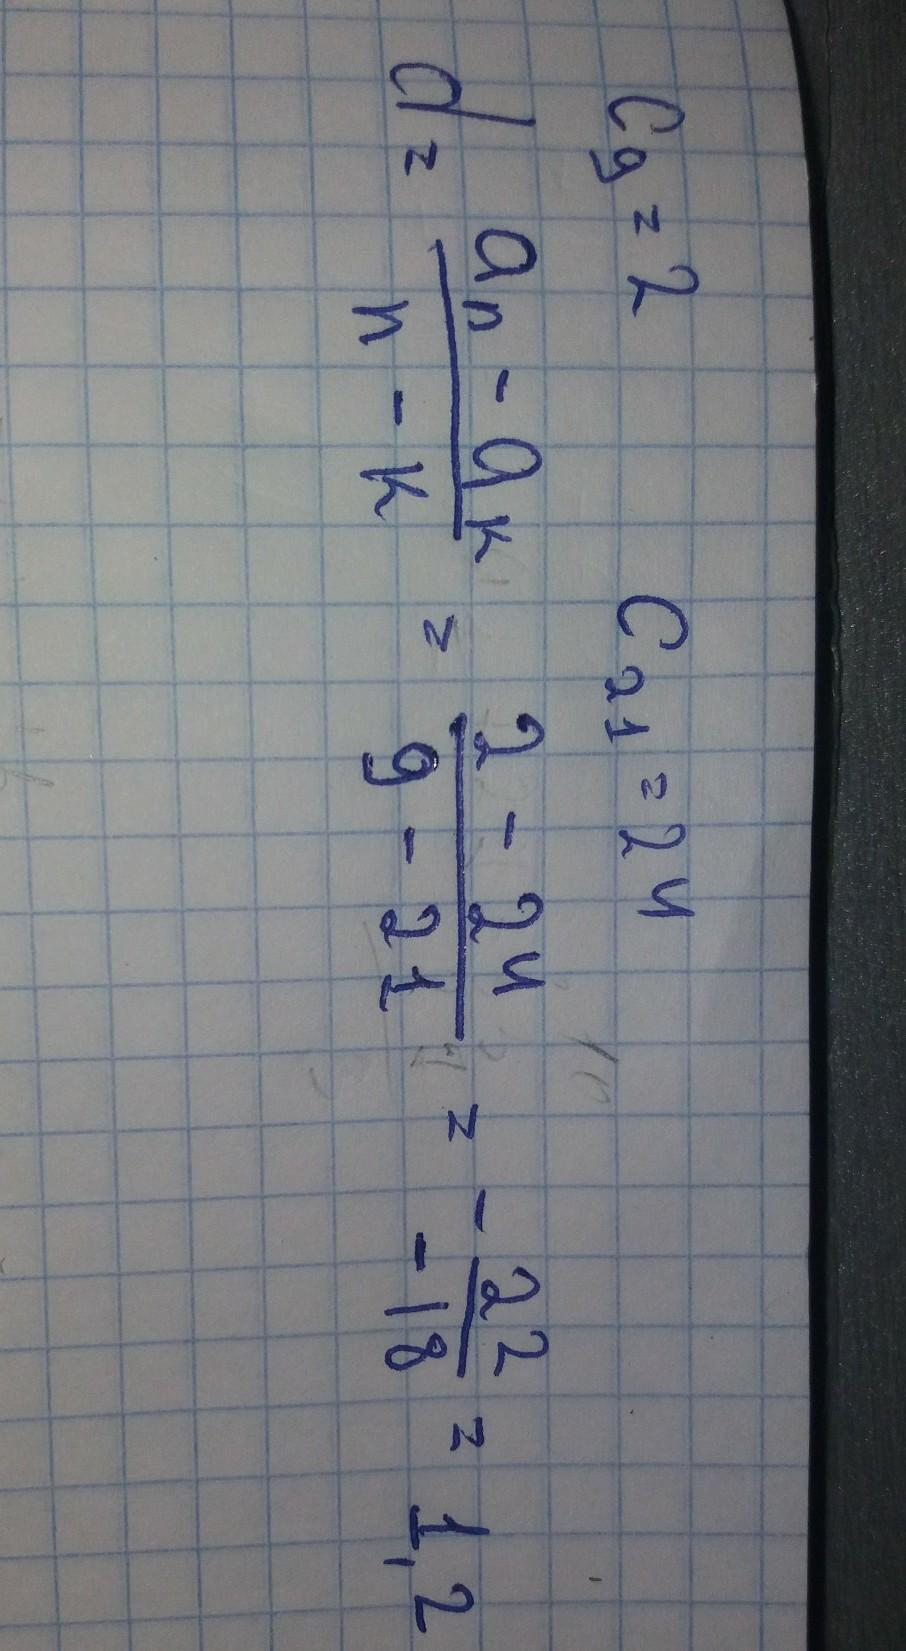 C₉ = 2 C₂₁ = 24
d = (aₙ - aₖ)/(n - k) = (2 - 24)/(9 - 21) = (-22)/(-18) = 1,2